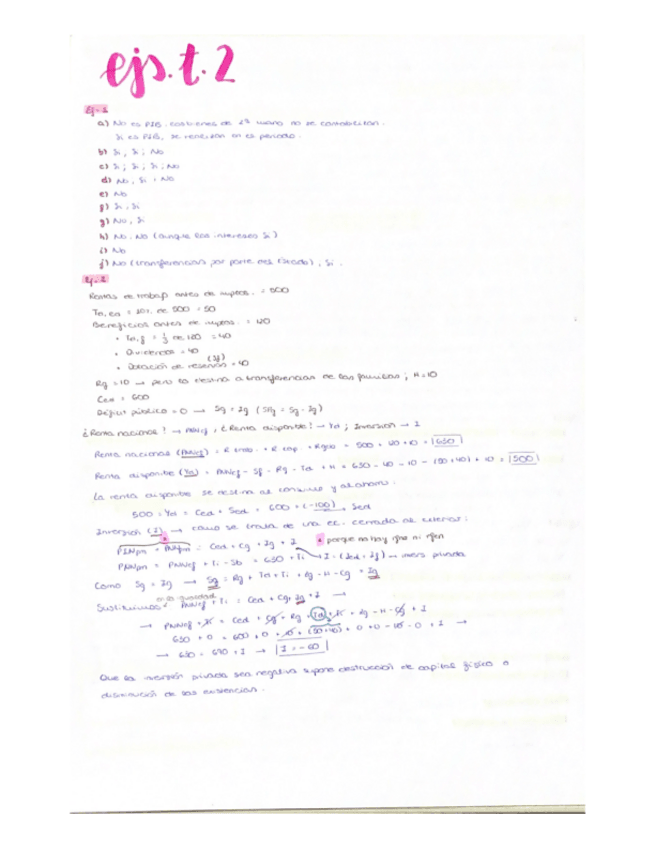 ejs. t. 2
Ej-1
a) No es PIB. Los bienes de 2ª mano no se contabilizan.
Si es PIB, se realizan en el periodo.
b) Si, Si; No
c) Si; Si; Si; No
d) No, Si, No
e) No
f) Si, Si
g) No, Si
h) No. No (aunque los intereses Si)
i) No
j) No (transferencias por parte del Estado), Si.
Ej-2
Rentas de trabajo antes de imptos. = 500
= 10% de 500 = 50
Beneficios antes de imptos. = 120
• = 1/3 de 120 = 40
• Dividendos = 40
• Dotación de reservas (Sf) = 40
Rg = 10 → pero la destina a transferencias de las familias; H=10
Ced = 600
Déficit público = 0 → Sg = Ig (SPg = Sg - Ig)
¿Renta nacional? → PNNcf, ¿Renta disponible? → Yd; Inversión → I
Renta nacional (PNNcf) = R trab. + R cap. + Rg = 500 + 120 + 10 = 630
Renta disponible (Yd) = PNNcf - Sf - Rg - Td + H = 630 - 40 - 10 - (50+40) + 10 = 500
La renta disponible se destina al consumo y al ahorro.
500 = Yd = Ced + Sed = 600 + (-100) → Sed
Inversión (I) → como se trata de una ec. cerrada al exterior:
PINpm = PNNpm = Ced + Cg + Ig + I porque no hay rfne ni rfen
PNNpm = PNNcf + Ti - Sb = 630 + Ti → inver. privada
Como Sg = Ig → Sg = Rg + Td + Ti + - H - Cg = Ig
Sustituimos en la igualdad PNNcf + Ti = Ced + Cg + Ig + I →
→ PNNcf + Ti = Ced + Cg + Rg + Td + Ti + - H - Cg + I
630 + 0 = 600 + 0 + 10 + (50+40) + 0 + 0 - 10 - 0 + I →
→ 630 = 690 + I → I = -60
Que la inversión privada sea negativa supone destrucción de capital físico o
disminución de las existencias.